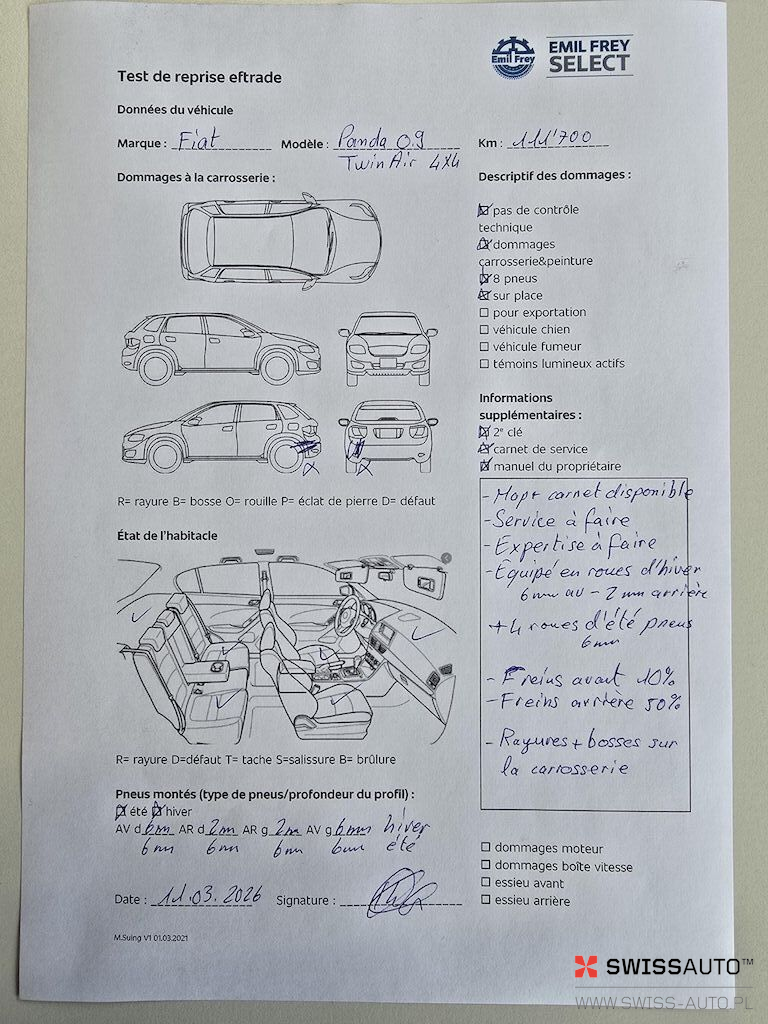 Emil Frey
EMIL FREY
SELECT
Test de reprise eftrade
Données du véhicule
Marque : Fiat Modèle : Panda 0.9 Km : 111'700
TwinAir 4x4
Dommages à la carrosserie :
Descriptif des dommages :
pas de contrôle
technique
dommages
carrosserie&peinture
8 pneus
sur place
pour exportation
véhicule chien
véhicule fumeur
témoins lumineux actifs
Informations
supplémentaires :
2e clé
carnet de service
manuel du propriétaire
R= rayure B= bosse O= rouille P= éclat de pierre D= défaut
État de l'habitacle
- Map+ carnet disponible
- Service à faire
- Expertise à faire
- Équipé en roues d'hiver
6mm av - 2mm arrière
+ 4 roues d'été pneus
6mm
- Freins avant 10%
- Freins arrière 50%
- Rayures + bosses sur
la carrosserie
R= rayure D=défaut T= tache S=salissure B= brûlure
Pneus montés (type de pneus/profondeur du profil) :
été hiver
AV d 6mm AR d 2mm AR g 2mm AV g 6mm hiver
6mm 6mm 6mm 6mm été
dommages moteur
dommages boîte vitesse
essieu avant
essieu arrière
Date : 11.03.2026 Signature :
M.Suing V1 01.03.2021
SWISSAUTO™
WWW.SWISS-AUTO.PL